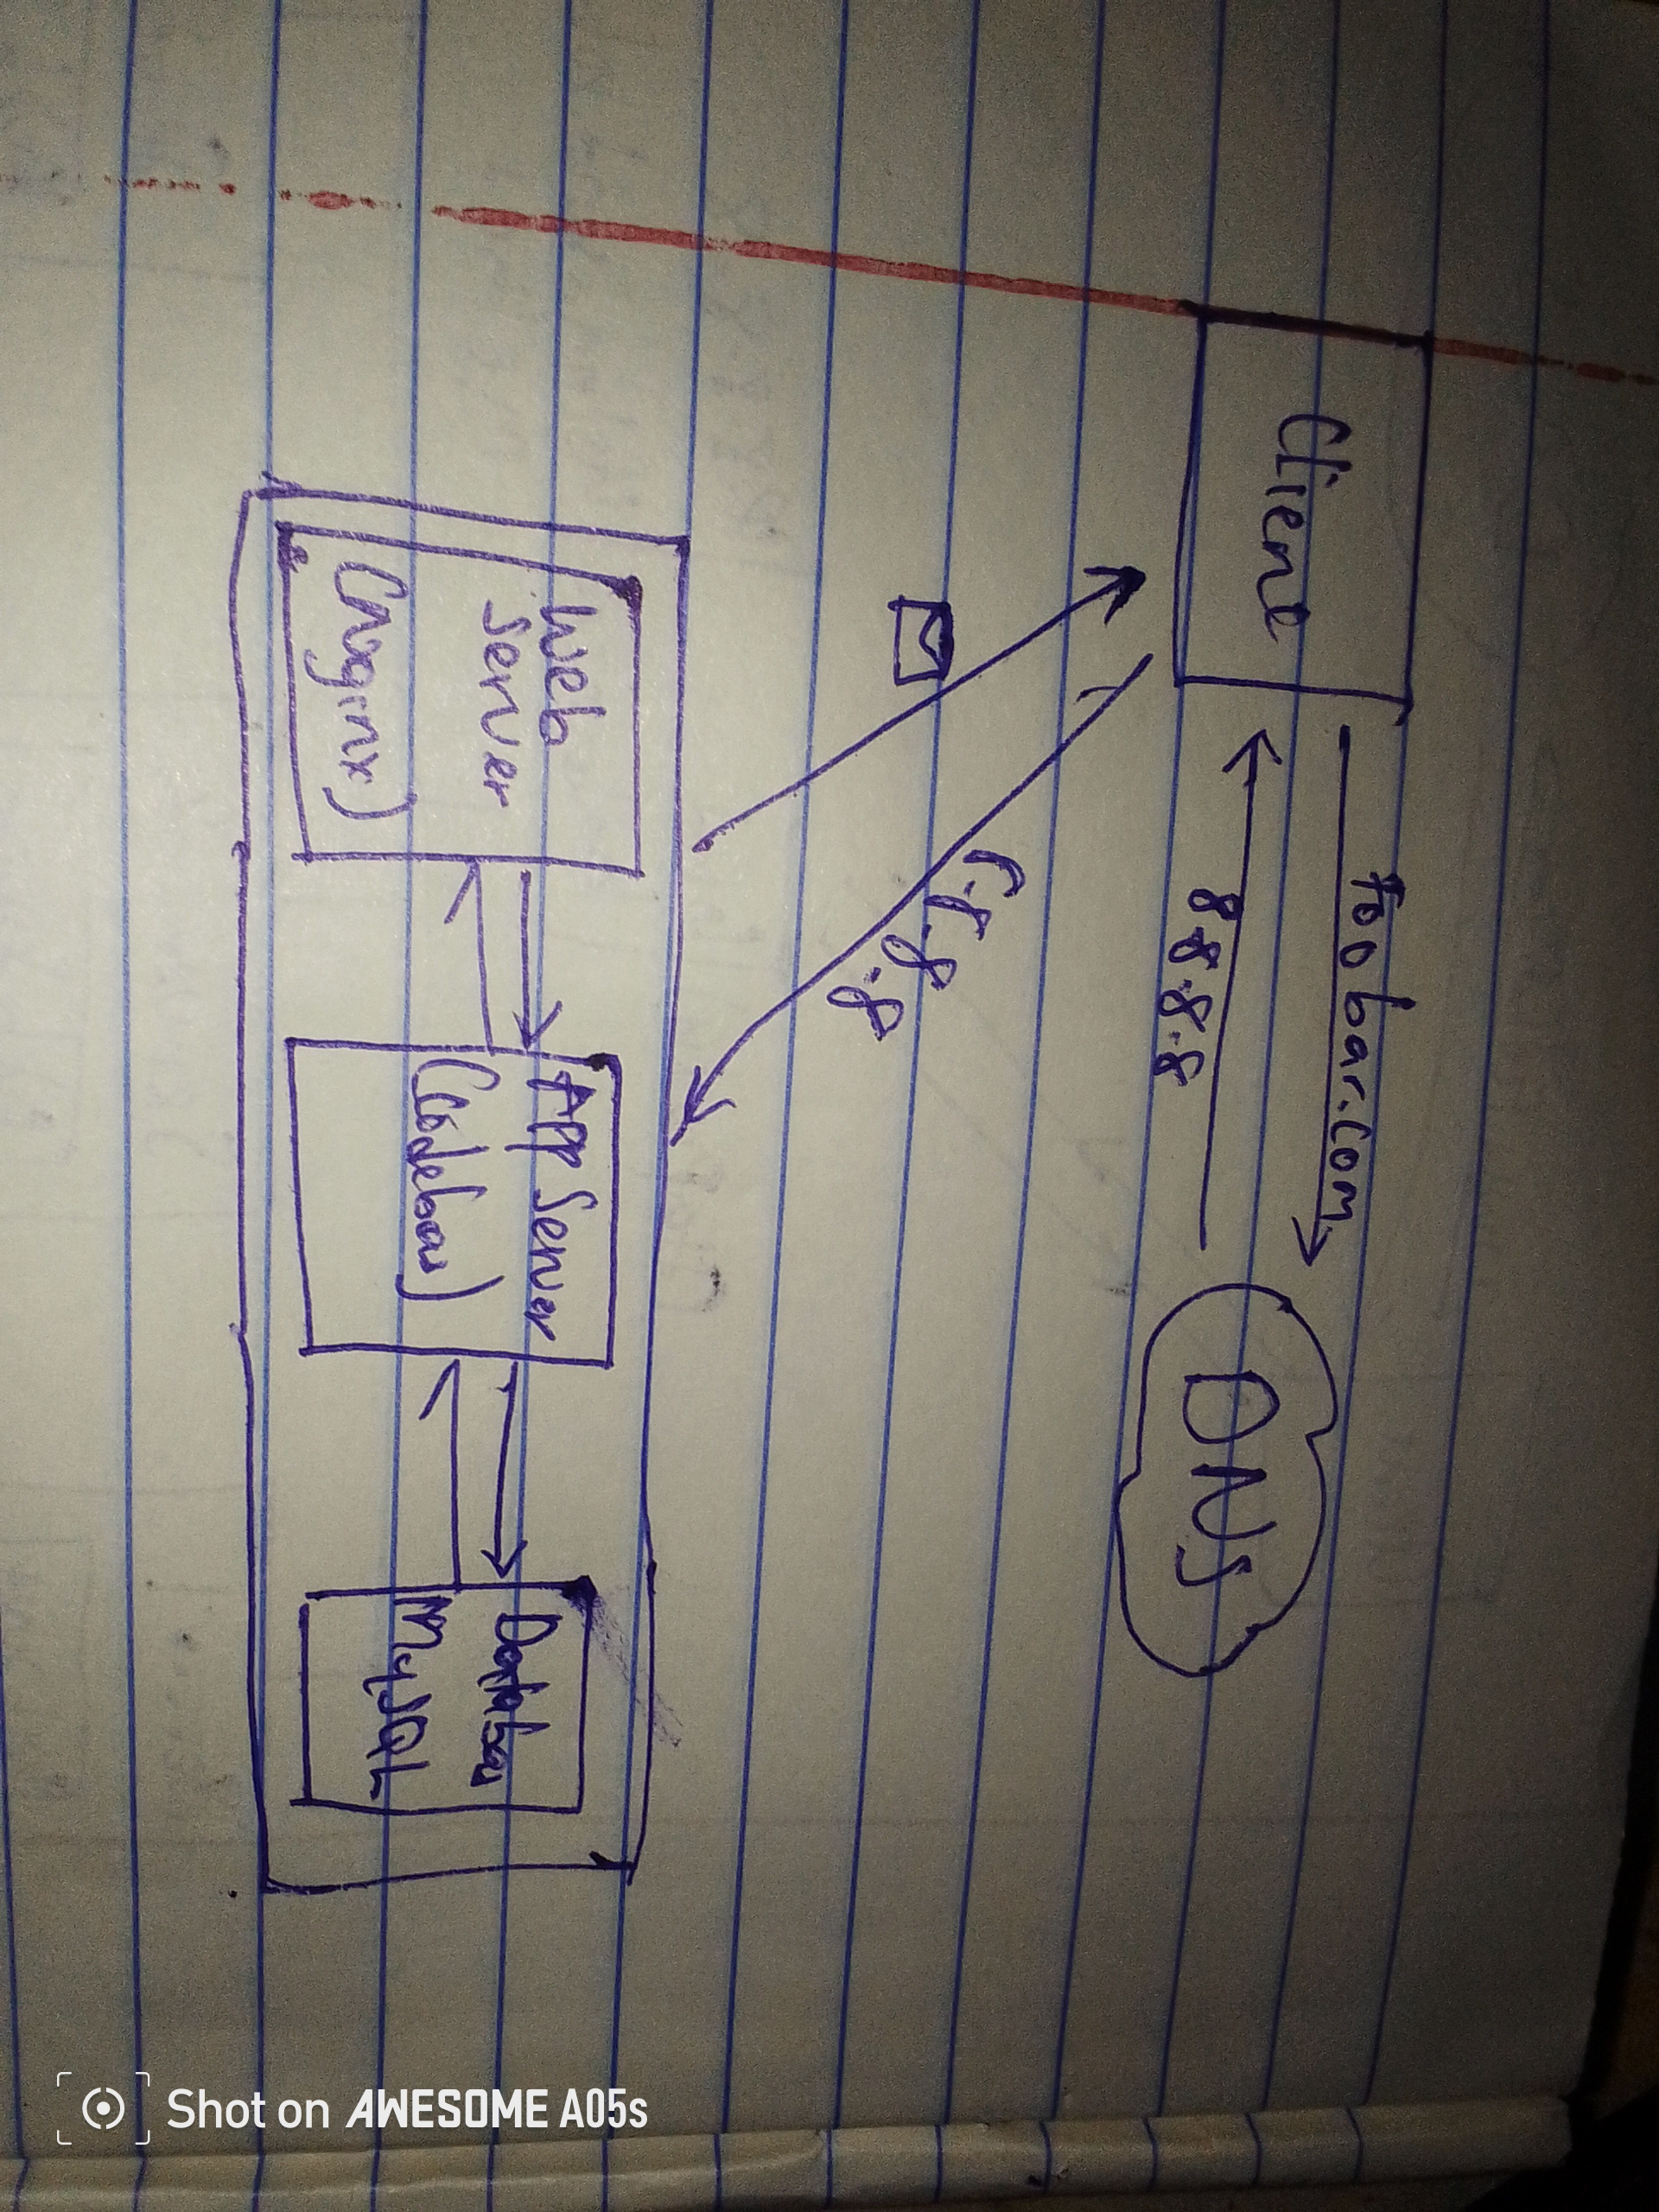 Client
foobar.com
8.8.8.8
DNS
8.8.8
Web
Server
(Nginx)
App Server
(Codebas)
Databas
MySQL
Shot on AWESOME A05s